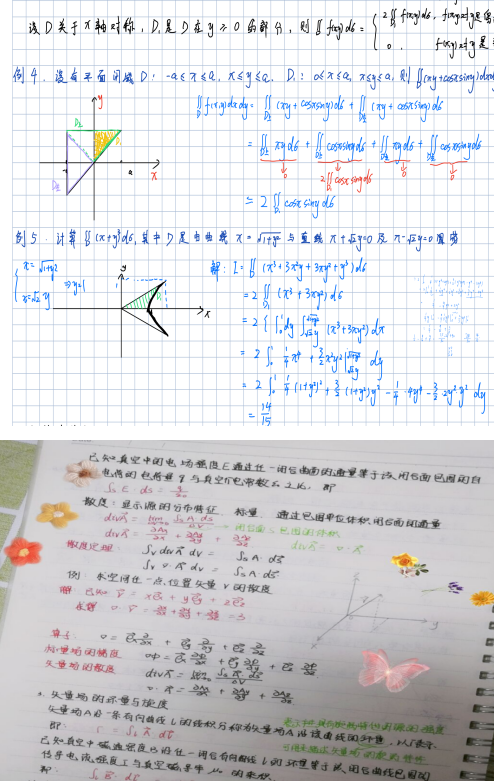 设 D 关于 x 轴对称, D₁是 D 在 y ≥ 0 的部分, 则 ∬f(x,y)dσ = { 2∬f(x,y)dσ,
0.
例4. 设有平面闭域 D: -a≤x≤a, x≤y≤a. D₁: 0≤x≤a, x≤y≤a, 则 ∬(xy+cosxsiny)dxdy
y
D₂
D₁
∬f(x,y)dxdy = ∬(xy+cosxsiny)dσ + ∬(xy+cosxsiny)dσ
= ∬xydσ + ∬cosxsinydσ + ∬xydσ + ∬cosxsinydσ
0 2∬cosxsinydσ 0 0
a x
D₃
= 2∬cosxsinydσ
例5. 计算∬(x+y)³dσ, 其中 D 是由曲线 x=√1+y² 与直线 x+√2y=0 及 x-√2y=0 围
{ x=√1+y²
x=√2 y ⇒ y=1
y
1
x
解: I = ∬(x³+3x²y+3xy²+y³)dσ
= 2∬(x³+3xy²)dσ
= 2∫₀¹dy∫(x³+3xy²)dx
= 2∫₀¹ ¼x⁴+3/2x²y² dy
= 2∫₀¹ ¼(1+y²)²+3/2(1+y²)y²-¼·4y⁴-3/2·2y²·y² dy
= 14/15
已知真空中的电场强度E通过任一闭合曲面的通量等于该闭合面包围的自
电荷的电荷量q与真空介电常数ε₀之比, 即
∮ₛ E·ds = q/ε₀
散度: 显示源的分布特征 标量 通过包围单位体积闭合面的通量
divA = lim ∮ₛ A·ds/ΔV → 闭合面S包围的体积
divA = ∂Ax/∂x + ∂Ay/∂y + ∂Az/∂z divA = ∇·A
散度定理 ∫ᵥ divA dV = ∮ₛ A·ds
∫ᵥ ∇·A dV = ∮ₛ A·ds
例: 求空间任一点位置矢量 r 的散度
解: 已知 r = xeₓ + yeᵧ + ze_z
∇·r = ∂x/∂x + ∂y/∂y + ∂z/∂z = 3
z
r
y
x
算子 ∇ = eₓ∂/∂x + eᵧ∂/∂y + e_z∂/∂z
标量场的梯度 ∇Φ = eₓ∂Φ/∂x + eᵧ∂Φ/∂y + e_z∂Φ/∂z
矢量场的散度 divA = lim ∮ₛ A·ds/ΔV
∇·A = ∂Ax/∂x + ∂Ay/∂y + ∂Az/∂z
3. 矢量场的环量与旋度
矢量场A沿一条有向曲线l的线积分称为矢量场A沿该曲线的环量, 以Γ表示
即: Γ = ∮ A·dl
已知真空中磁通密度B沿任一闭合有向曲线l的环量等于该闭合曲线包围的
传导电流强度I与真空磁导率μ₀的乘积.
即: ∮ B·dl